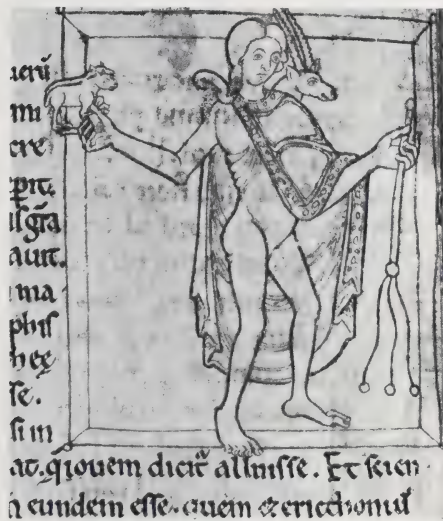 uerū
mi
cre
pit.
ul gr̄a
auit.
ma
phis
h ex
se.
si in
at. q̇ iouem dicit̃ aluisse. Et scien
eundem esse. quem & ericthoniuſ